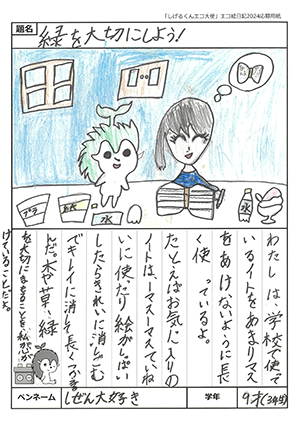 「しげるくんエコ大使」エコ絵日記2024応募用紙
題名
緑を大切にしよう!
プラ
水
氷
わたしは、学校で使って
いるノートをあまりマス
をあけないように長
く使っているよ。
たとえばお気に入りの
ノートは、一マス一マスていね
いに使ったり絵がしっぱい
したらきれいに消しごむ
でキレイに消す長くつかう
んだ。木や草、緑
を大切にすることを、私が心が
けていることだよ。
ペンネーム
しぜん大好き
学年
9才(3年生)